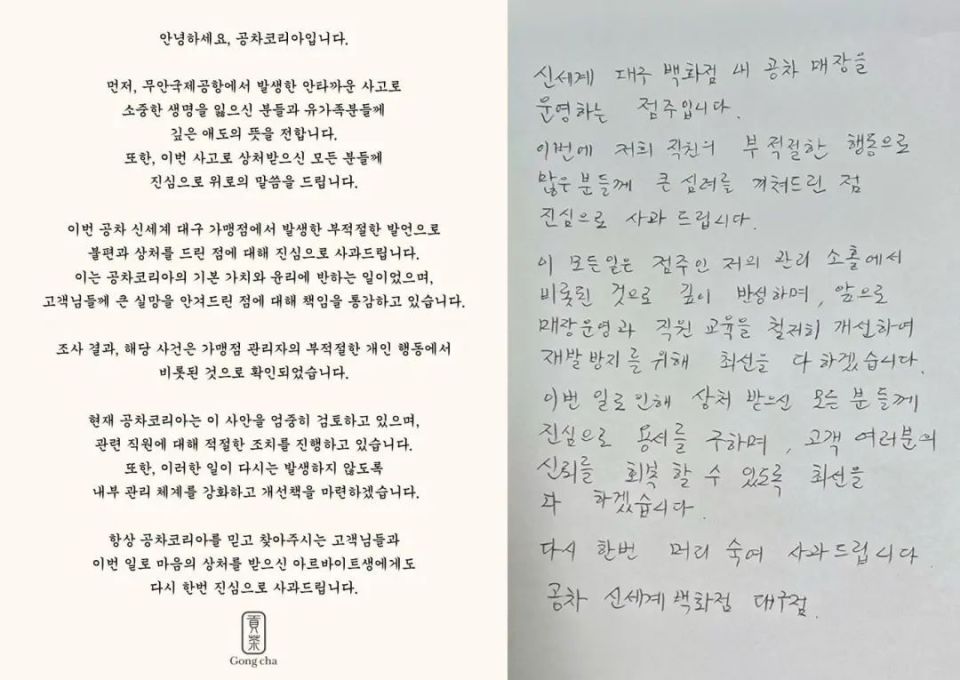 안녕하세요, 공차코리아입니다.
먼저, 무안국제공항에서 발생한 안타까운 사고로
소중한 생명을 잃으신 분들과 유가족분들께
깊은 애도의 뜻을 전합니다.
또한, 이번 사고로 상처받으신 모든 분들께
진심으로 위로의 말씀을 드립니다.
이번 공차 신세계 대구 가맹점에서 발생한 부적절한 발언으로
불편과 상처를 드린 점에 대해 진심으로 사과드립니다.
이는 공차코리아의 기본 가치와 윤리에 반하는 일이었으며,
고객님들께 큰 실망을 안겨드린 점에 대해 책임을 통감하고 있습니다.
조사 결과, 해당 사건은 가맹점 관리자의 부적절한 개인 행동에서
비롯된 것으로 확인되었습니다.
현재 공차코리아는 이 사안을 엄중히 검토하고 있으며,
관련 직원에 대해 적절한 조치를 진행하고 있습니다.
또한, 이러한 일이 다시는 발생하지 않도록
내부 관리 체계를 강화하고 개선책을 마련하겠습니다.
항상 공차코리아를 믿고 찾아주시는 고객님들과
이번 일로 마음의 상처를 받으신 아르바이트생에게도
다시 한번 진심으로 사과드립니다.
貢茶
Gong cha
신세계 대구 백화점 내 공차 매장을
운영하는 점주입니다.
이번에 저희 직원의 부적절한 행동으로
많은 분들께 큰 심려를 끼쳐드린 점
진심으로 사과 드립니다.
이 모든일은 점주인 저의 관리 소홀에서
비롯된 것으로 깊이 반성하며, 앞으로
매장운영과 직원 교육을 철저히 개선하여
재발 방지를 위해 최선을 다 하겠습니다.
이번 일로 인해 상처 받으신 모든 분들께
진심으로 용서를 구하며, 고객 여러분의
신뢰를 회복 할 수 있도록 최선을
다 하겠습니다.
다시 한번 머리 숙여 사과드립니다
공차 신세계백화점 대구점.